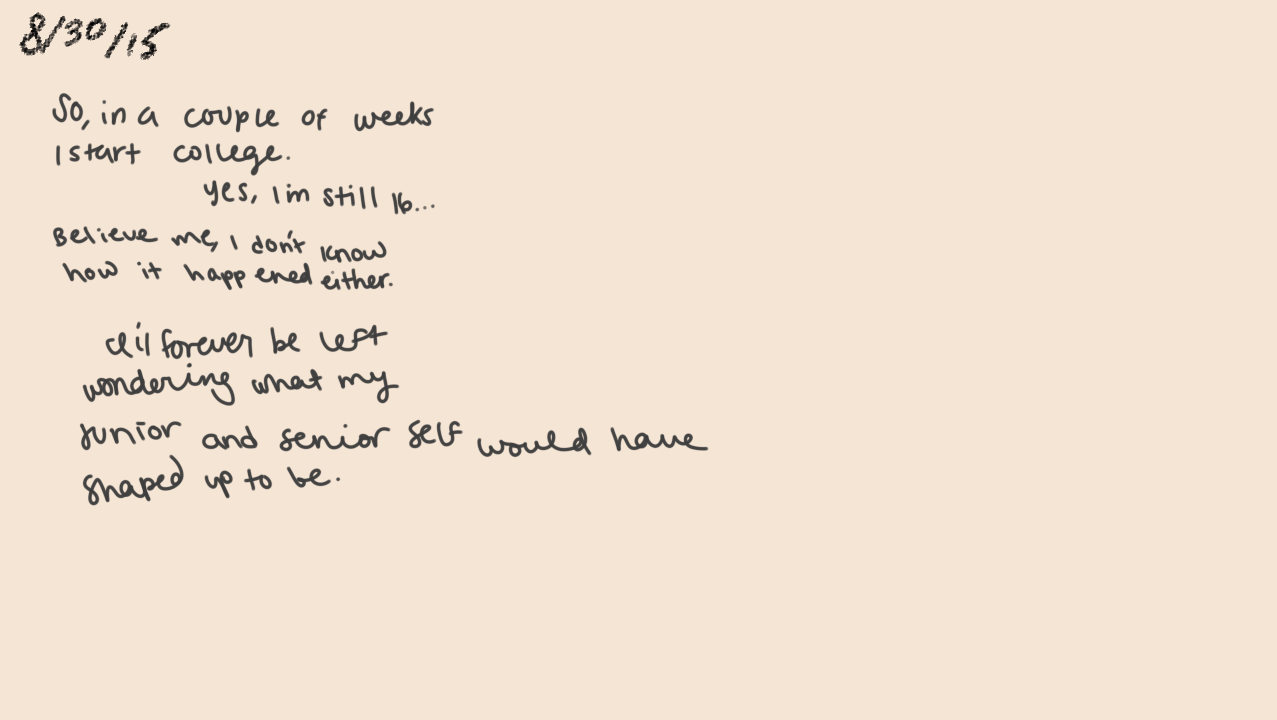 8/30/15
So, in a couple of weeks
I start college.
yes, I'm still 16...
Believe me, I don't know
how it happened either.
I'll forever be left
wondering what my
junior and senior self would have
shaped up to be.